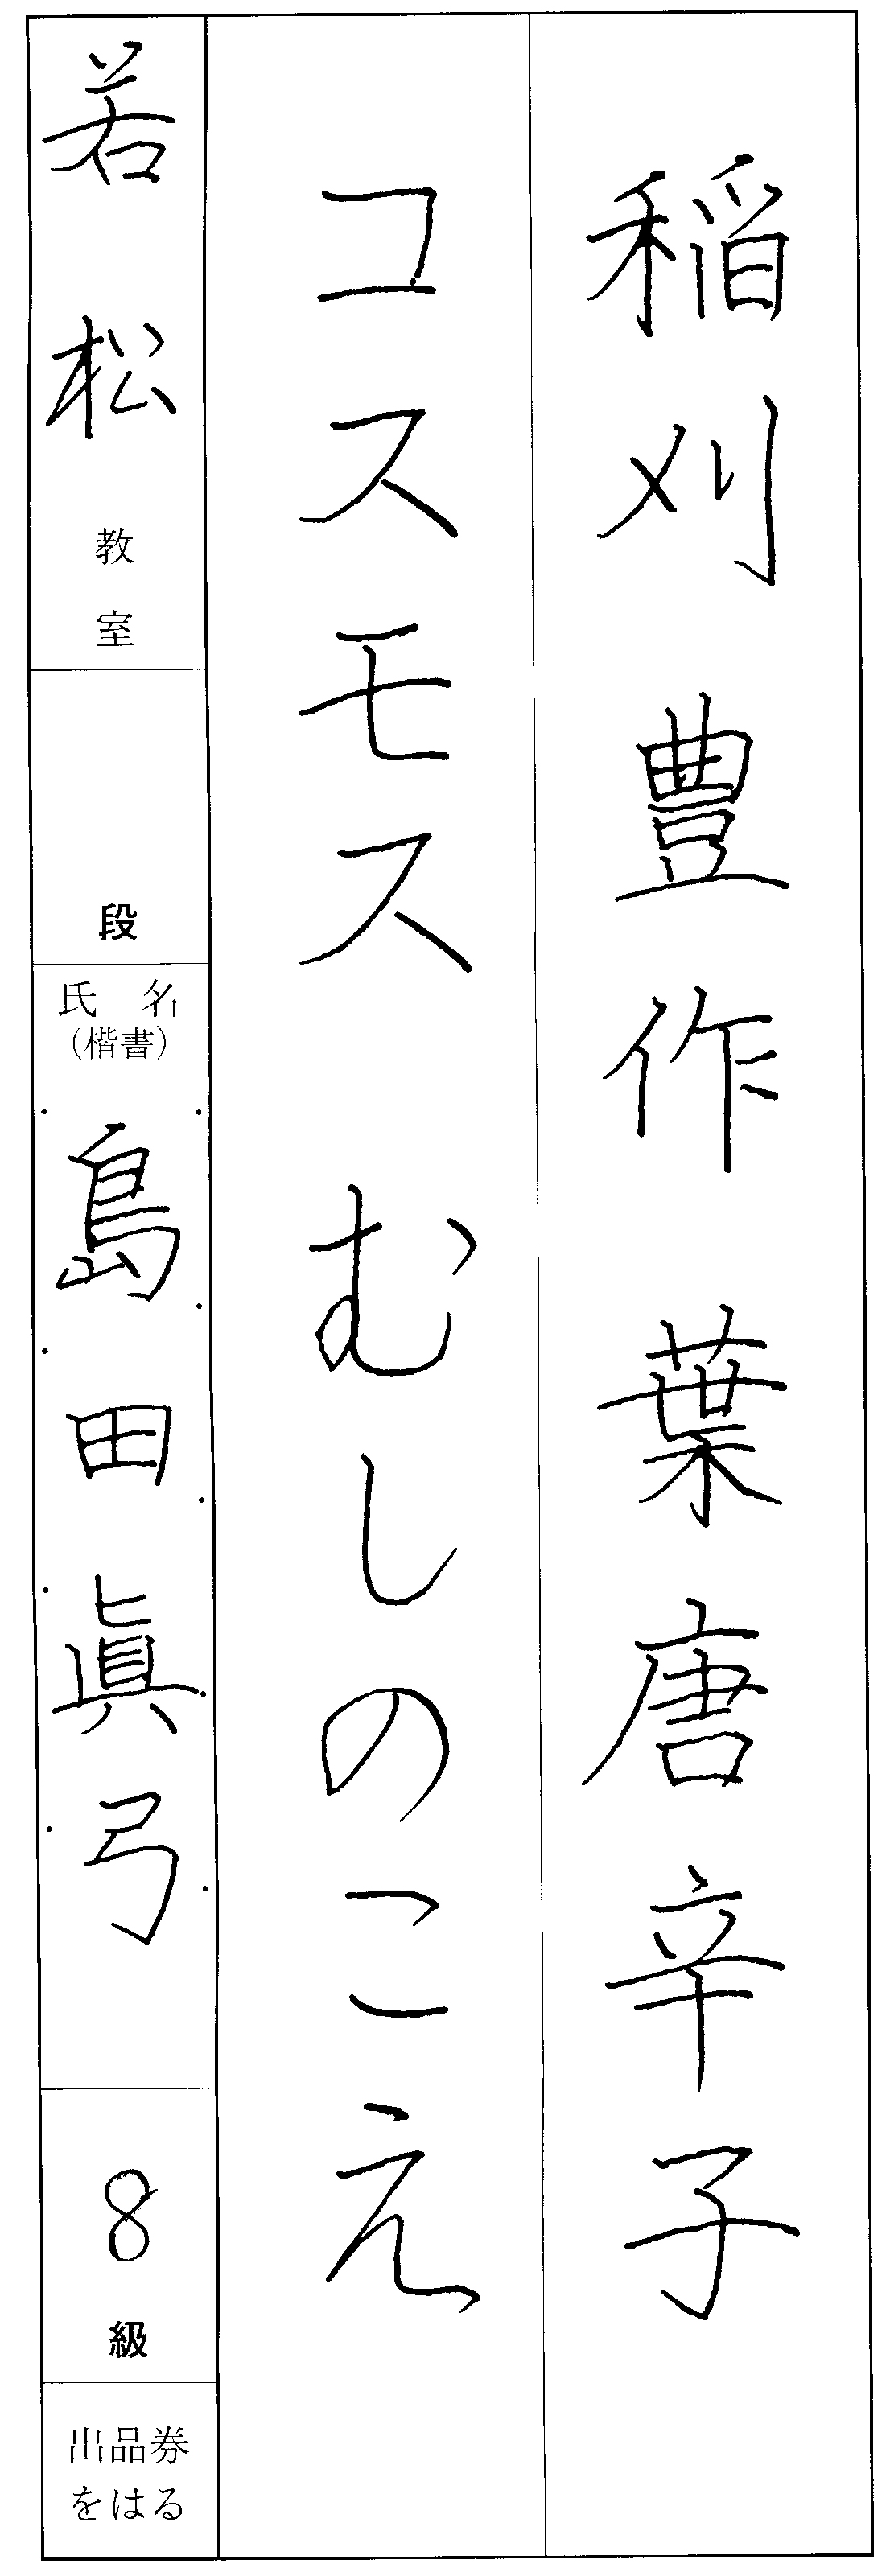 稲刈豊作 葉唐辛子
コスモス むしのこえ
若松教室
段
氏名
(楷書)
島田眞弓
8級
出品券
をはる